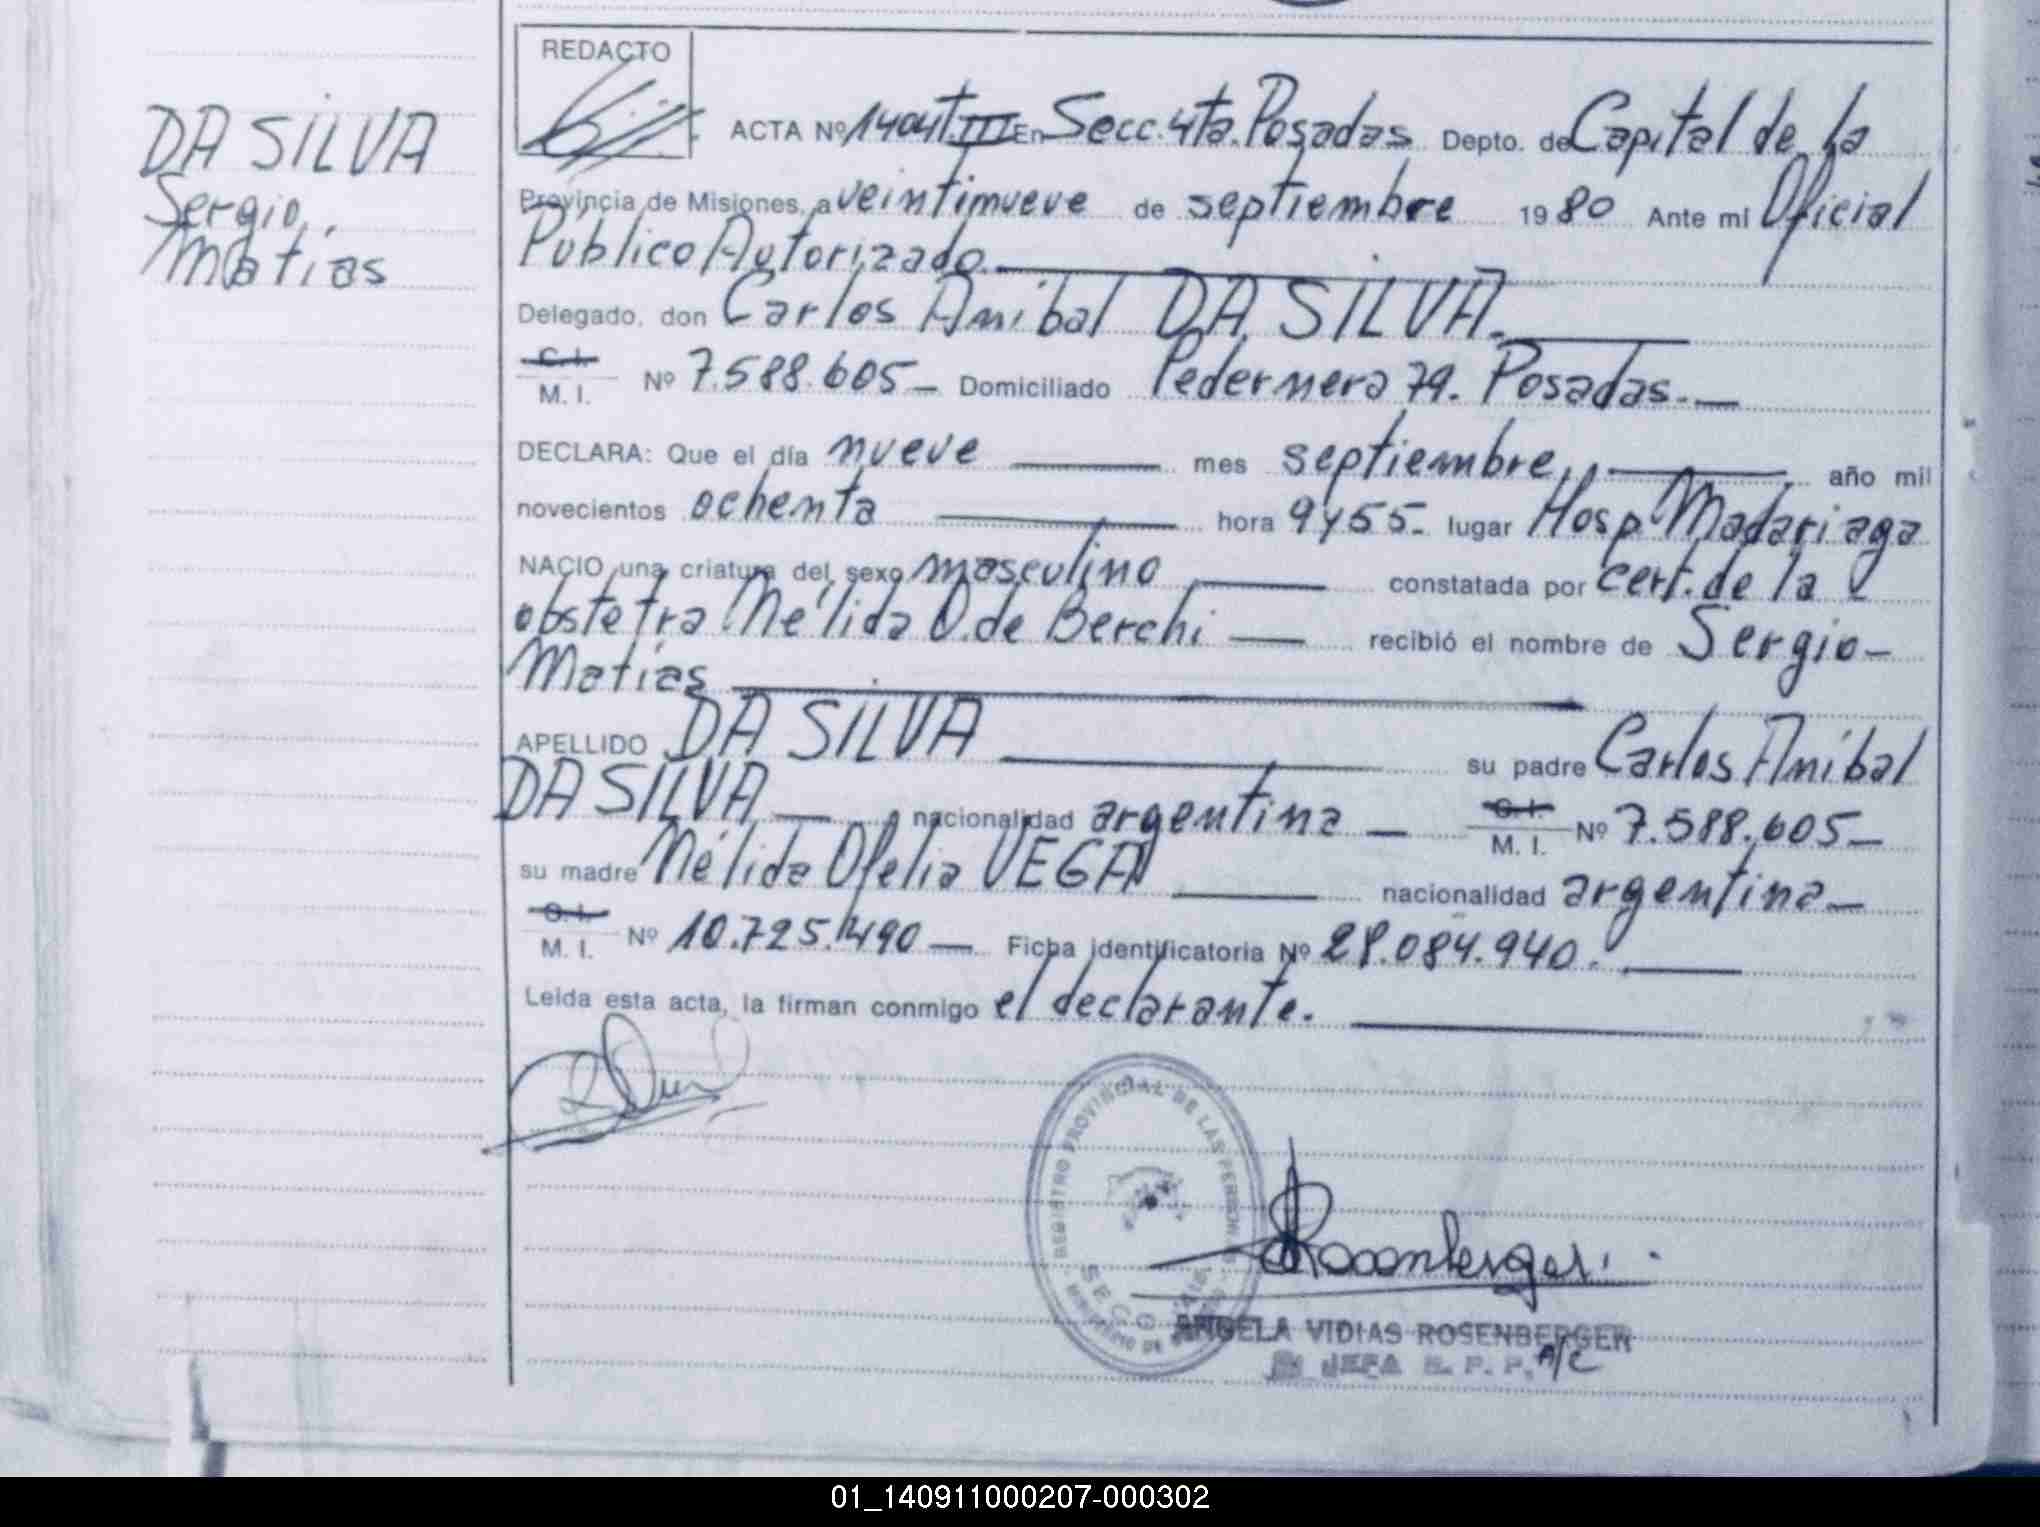 REDACTO
DA SILVA
Sergio,
Matías
ACTA Nº 1404 T III En Secc. 4ta. Posadas Depto. de Capital de la
Provincia de Misiones, a veintinueve de septiembre 1980 Ante mi Oficial
Público Autorizado.
Delegado, don Carlos Anibal DA SILVA.
C. I.
M. I. Nº 7.588.605 Domiciliado Pedernera 79. Posadas.
DECLARA: Que el día nueve mes septiembre, año mil
novecientos ochenta hora 9 y 55 lugar Hosp. Madariaga
NACIO una criatura del sexo masculino constatada por cert. de la
obstetra Nélida O. de Berchi recibió el nombre de Sergio
Matías
APELLIDO DA SILVA su padre Carlos Aníbal
DA SILVA nacionalidad argentina C. I. M. I. Nº 7.588.605
su madre Nélida Ofelia VEGA nacionalidad argentina
C. I.
M. I. Nº 10.725.490 Ficha identificatoria Nº 28.084.940.
Leida esta acta, la firman conmigo el declarante.
REGISTRO PROVINCIAL DE LAS PERSONAS
Rosenberger.
ANGELA VIDIAS ROSENBERGER
JEFA R. P. P. A/C
01_140911000207-000302